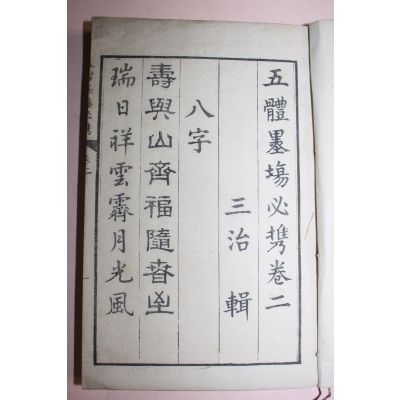 五體墨場必携卷二
三治輯
八字
壽與山齊福隨春至
瑞日祥雲霽月光風